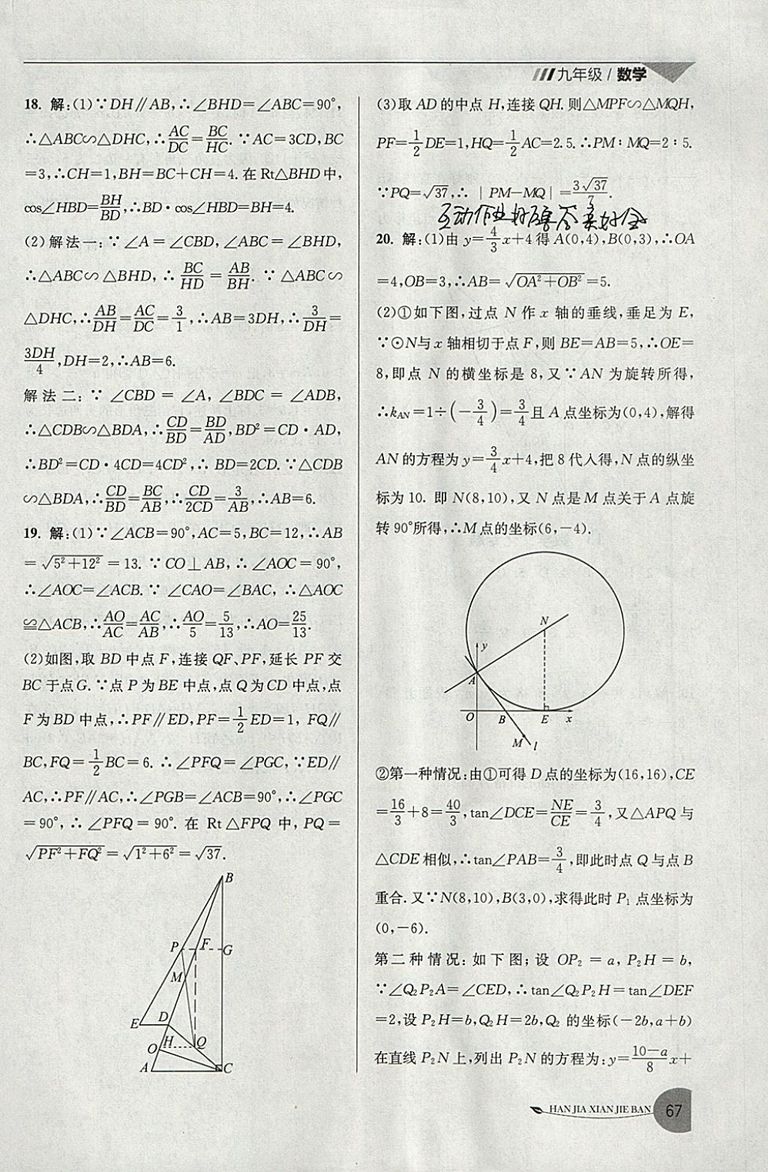 九年级 / 数学
18. 解:(1)∵DH∥AB,∴∠BHD=∠ABC=90°,
∴△ABC∽△DHC,∴AC/DC=BC/HC.∵AC=3CD,BC
=3,∴CH=1,BH=BC+CH=4.在Rt△BHD中,
cos∠HBD=BH/BD,∴BD·cos∠HBD=BH=4.
(2)解法一:∵∠A=∠CBD,∠ABC=∠BHD,
∴△ABC∽△BHD,∴BC/HD=AB/BH.∵△ABC∽
△DHC,∴AB/DH=AC/DC=3/1,∴AB=3DH,∴3/DH=
3DH/4,DH=2,∴AB=6.
解法二:∵∠CBD=∠A,∠BDC=∠ADB,
∴△CDB∽△BDA,∴CD/BD=BD/AD,BD²=CD·AD,
∴BD²=CD·4CD=4CD²,∴BD=2CD.∵△CDB
∽△BDA,∴CD/BD=BC/AB,∴CD/2CD=3/AB,∴AB=6.
19. 解:(1)∵∠ACB=90°,AC=5,BC=12,∴AB
=√(5²+12²)=13.∵CO⊥AB,∴∠AOC=90°,
∴∠AOC=∠ACB.∵∠CAO=∠BAC,∴△AOC
≌△ACB,∴AO/AC=AC/AB,∴AO/5=5/13,∴AO=25/13.
(2)如图,取BD中点F,连接QF、PF,延长PF交
BC于点G.∵点P为BE中点,点Q为CD中点,点
F为BD中点,∴PF∥ED,PF=1/2ED=1,FQ∥
BC,FQ=1/2BC=6.∴∠PFQ=∠PGC,∵ED∥
AC,∴PF∥AC,∴∠PGB=∠ACB=90°,∴∠PGC
=90°,∴∠PFQ=90°.在Rt△FPQ中,PQ=
√(PF²+FQ²)=√(1²+6²)=√37.
B
P F G
M
E D
H Q
O
A C
(3)取AD的中点H,连接QH.则△MPF∽△MQH,
PF=1/2DE=1,HQ=1/2AC=2.5.∴PM∶MQ=2∶5.
∵PQ=√37,∴|PM-MQ|=3√37/7.
20. 解:(1)由y=4/3x+4得A(0,4),B(0,3),∴OA
=4,OB=3,∴AB=√(OA²+OB²)=5.
(2)①如下图,过点N作x轴的垂线,垂足为E,
∵⊙N与x轴相切于点F,则BE=AB=5,∴OE=
8,即点N的横坐标是8,又∵AN为旋转所得,
∴kAN=1÷(-3/4)=3/4且A点坐标为(0,4),解得
AN的方程为y=3/4x+4,把8代人得,N点的纵坐
标为10.即N(8,10),又N点是M点关于A点旋
转90°所得,∴M点的坐标(6,-4).
N
y
A
O B E x
M l
②第一种情况:由①可得D点的坐标为(16,16),CE
=16/3+8=40/3,tan∠DCE=NE/CE=3/4,又△APQ与
△CDE相似,∴tan∠PAB=3/4,即此时点Q与点B
重合.又∵N(8,10),B(3,0),求得此时P₁点坐标为
(0,-6).
第二种情况:如下图;设OP₂=a,P₂H=b,
∵∠Q₂P₂A=∠CED,∴tan∠Q₂P₂H=tan∠DEF
=2,设P₂H=b,Q₂H=2b,Q₂的坐标(-2b,a+b)
在直线P₂N上,列出P₂N的方程为:y=(10-a)/8x+
HAN JIA XIAN JIE BAN 67